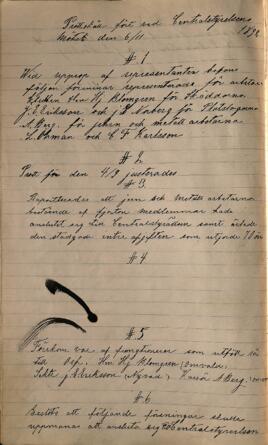 Protokoll fört vid Centralstyrelsens
Mötet den 6/11 1892
# 1
Vid upprop af representanter befans
följan föreningar representerade, för arbetar
klubben Hj Blomgren för Skräddarna
J. E. Eriksson och J. E. Norberg för
A. Berg. för jern och metall arbetarna
L. Öhman och C F Karlsson
# 2
Prot för den 4/9 justerades
# 3
Rapporterades att jern och Metall arbetarna
bestående af fjorton medlemmar hade
anslutit sig till Centralstyrelsen samt
den stadgade entre afgiften som utgjorde
# 4
# 5
Förekom val af funktionerer som utföll så
till Rep. Hj Blomgren omvald
Sekr J. E. Eriksson, Nyval, Kasör A Berg
# 6
Beslöts att följande föreningar skulle
uppmanas att ansluta sig till Centralstyrelsen